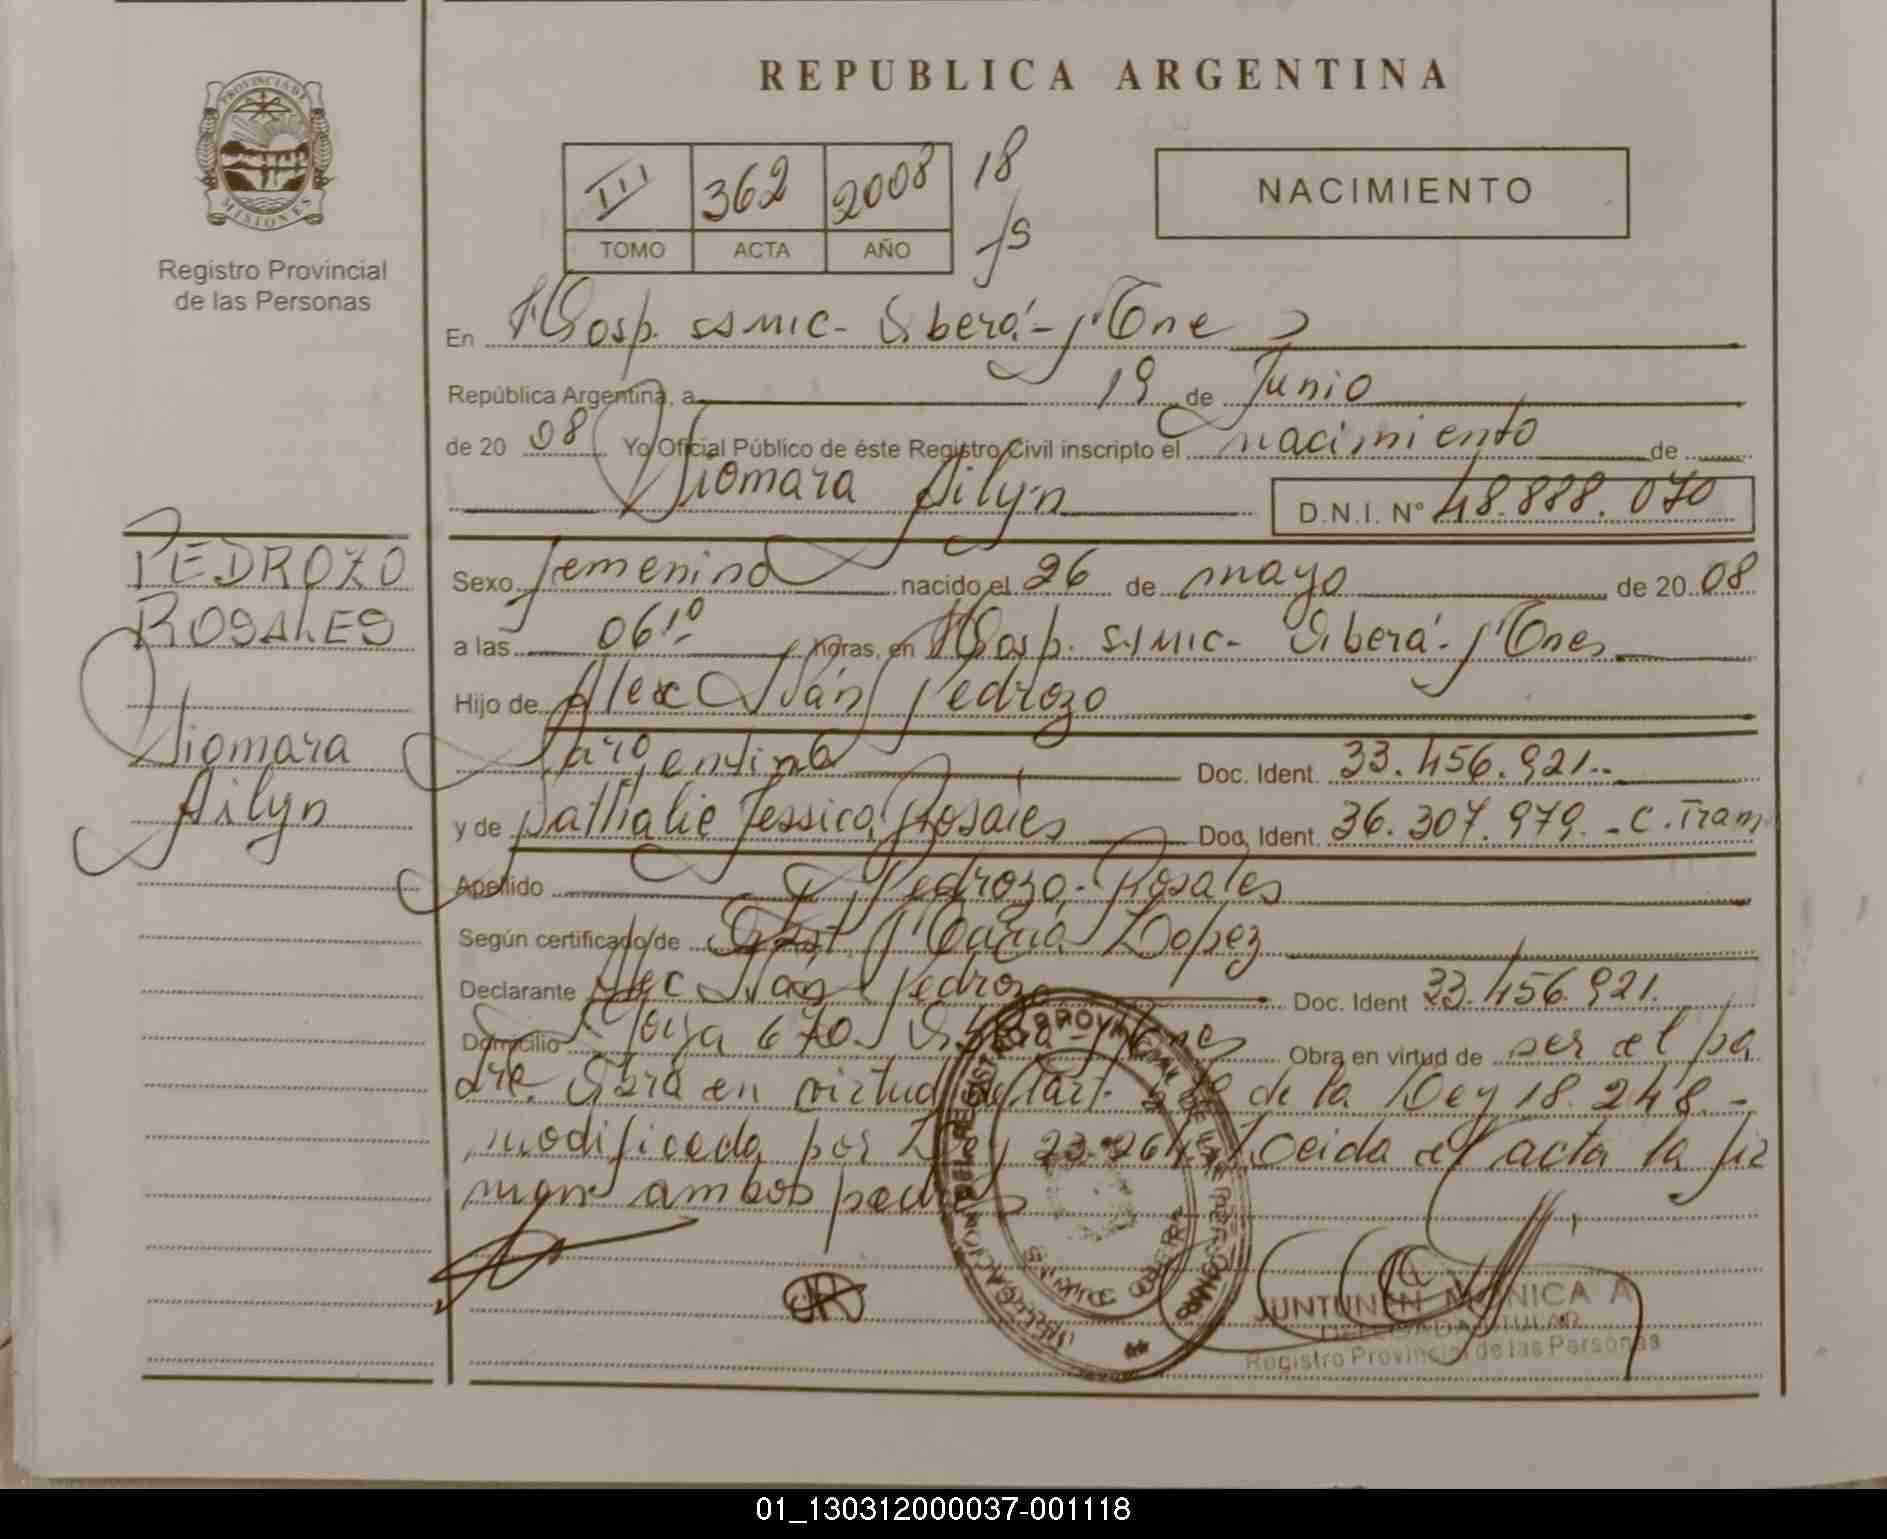 PROVINCIA DE
MISIONES
Registro Provincial
de las Personas
PEDROZO
ROSALES
Xiomara
Ailyn
REPUBLICA ARGENTINA
III 362 2008 18
TOMO ACTA AÑO
NACIMIENTO
En Hosp. SAMIC - Oberá - Mnes
República Argentina, a 19 de Junio
de 20 08 Yo Oficial Público de éste Registro Civil inscripto el nacimiento de
Xiomara Ailyn D.N.I. Nº 48.888.070
Sexo femenino nacido el 26 de mayo de 20 08
a las 06:10 horas, en Hosp. SAMIC - Oberá - Mnes
Hijo de Alex Iván Pedrozo
argentino Doc. Ident. 33.456.921.-
y de Nathalie Jessica Rosales Doc. Ident. 36.307.979.- C. Tram
Apellido Pedrozo - Rosales
Según certificado de Obst. María Lopez
Declarante Alex Iván Pedrozo Doc. Ident 33.456.921.
Domicilio 670. Oberá - Mnes Obra en virtud de ser el pa
dre. Obra en virtud del art. de la Ley 18.248.-
modificada por Ley 23.264.- Leida el acta la fir
man ambos padres
REGISTRO PROVINCIAL DE LAS PERSONAS
JUNTUNEN MONICA A
DELEGADA TITULAR
Registro Provincial de las Personas
01_130312000037-001118